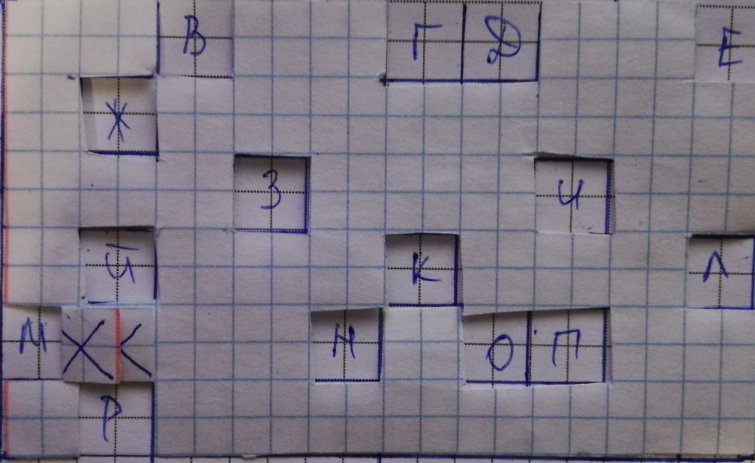 В Г Д Е
Ж
З И
Й К Л
М Н О П
Р